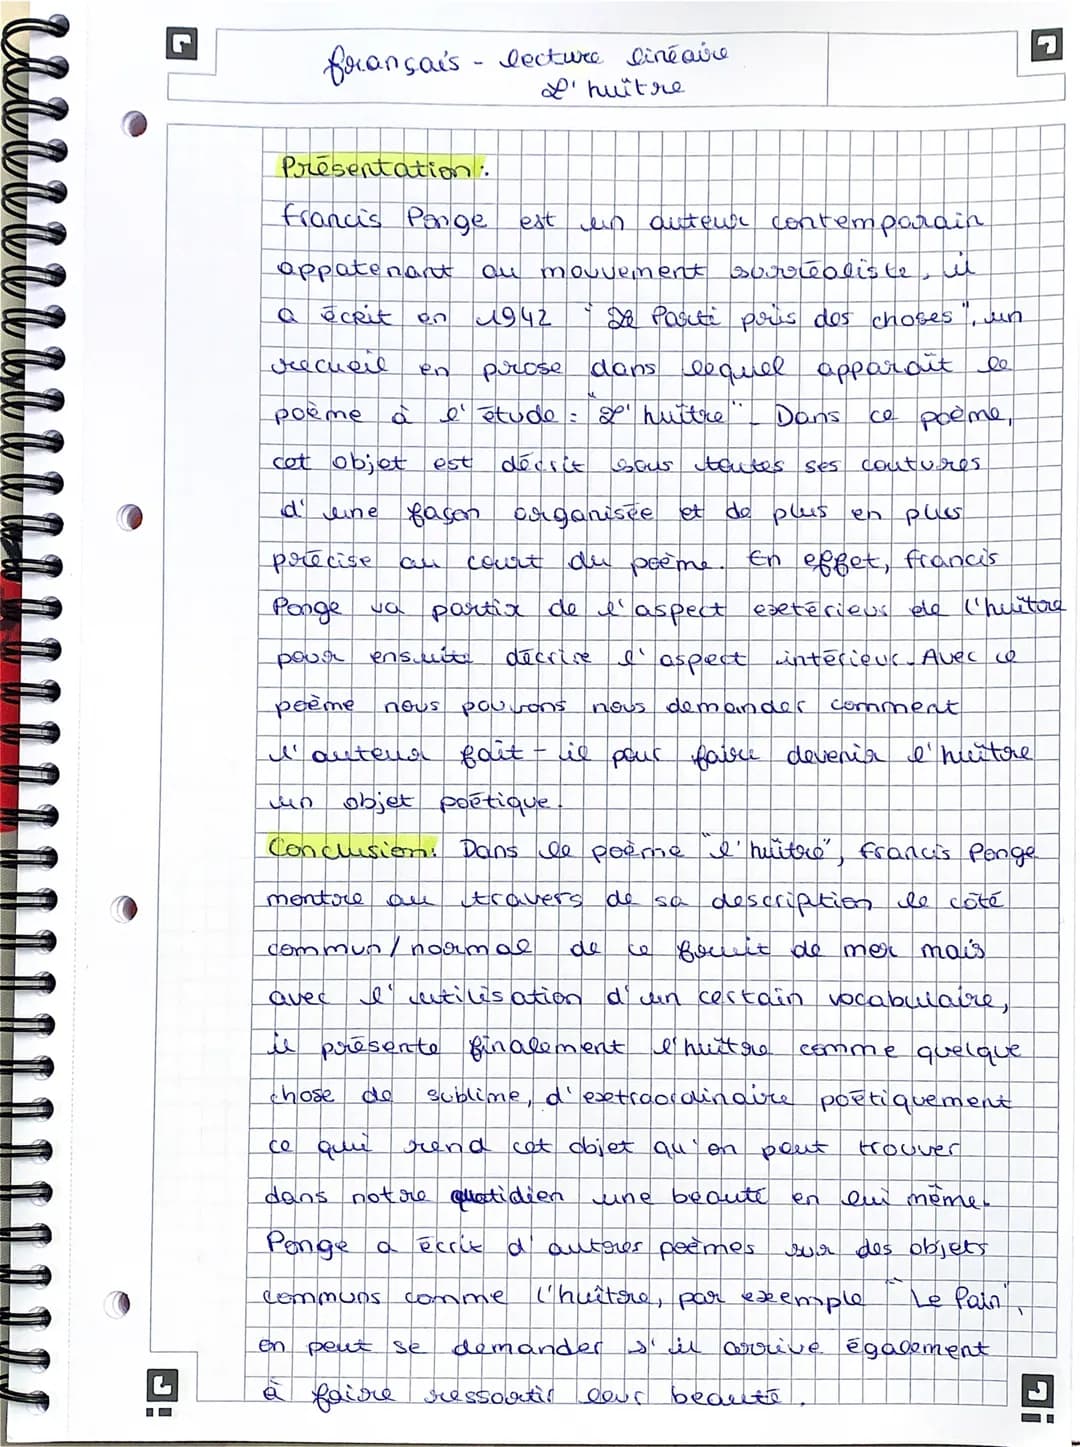 français - lecture linéaire
L'huître
Présentation :
Francis Ponge est un auteur contemporain
appatenant au mouvement surréaliste, il
a écrit en 1942 " Le Parti pris des choses", un
recueil en prose dans lequel apparaît le
poème à l'étude : "L'huître". Dans ce poème,
cet objet est décrit sous toutes ses coutures
d'une façon organisée et de plus en plus
précise au court du poème. En effet, Francis
Ponge va partir de l'aspect extérieur de l'huître
pour ensuite décrire l'aspect intérieur. Avec ce
poème nous pouvons nous demander comment
l'auteur fait-il pour faire devenir l'huître
un objet poétique.
Conclusion : Dans le poème "l'huître", Francis Ponge
montre au travers de sa description le côté
commun/normal de ce fruit de mer mais
avec l'utilisation d'un certain vocabulaire,
il présente finalement l'huître comme quelque
chose de sublime, d'extraordinaire poétiquement
ce qui rend cet objet qu'on peut trouver
dans notre quotidien une beauté en lui même.
Ponge a écrit d'autres poèmes sur des objets
communs comme l'huître, par exemple "Le Pain",
on peut se demander s'il arrive également
à faire ressortir leur beauté.